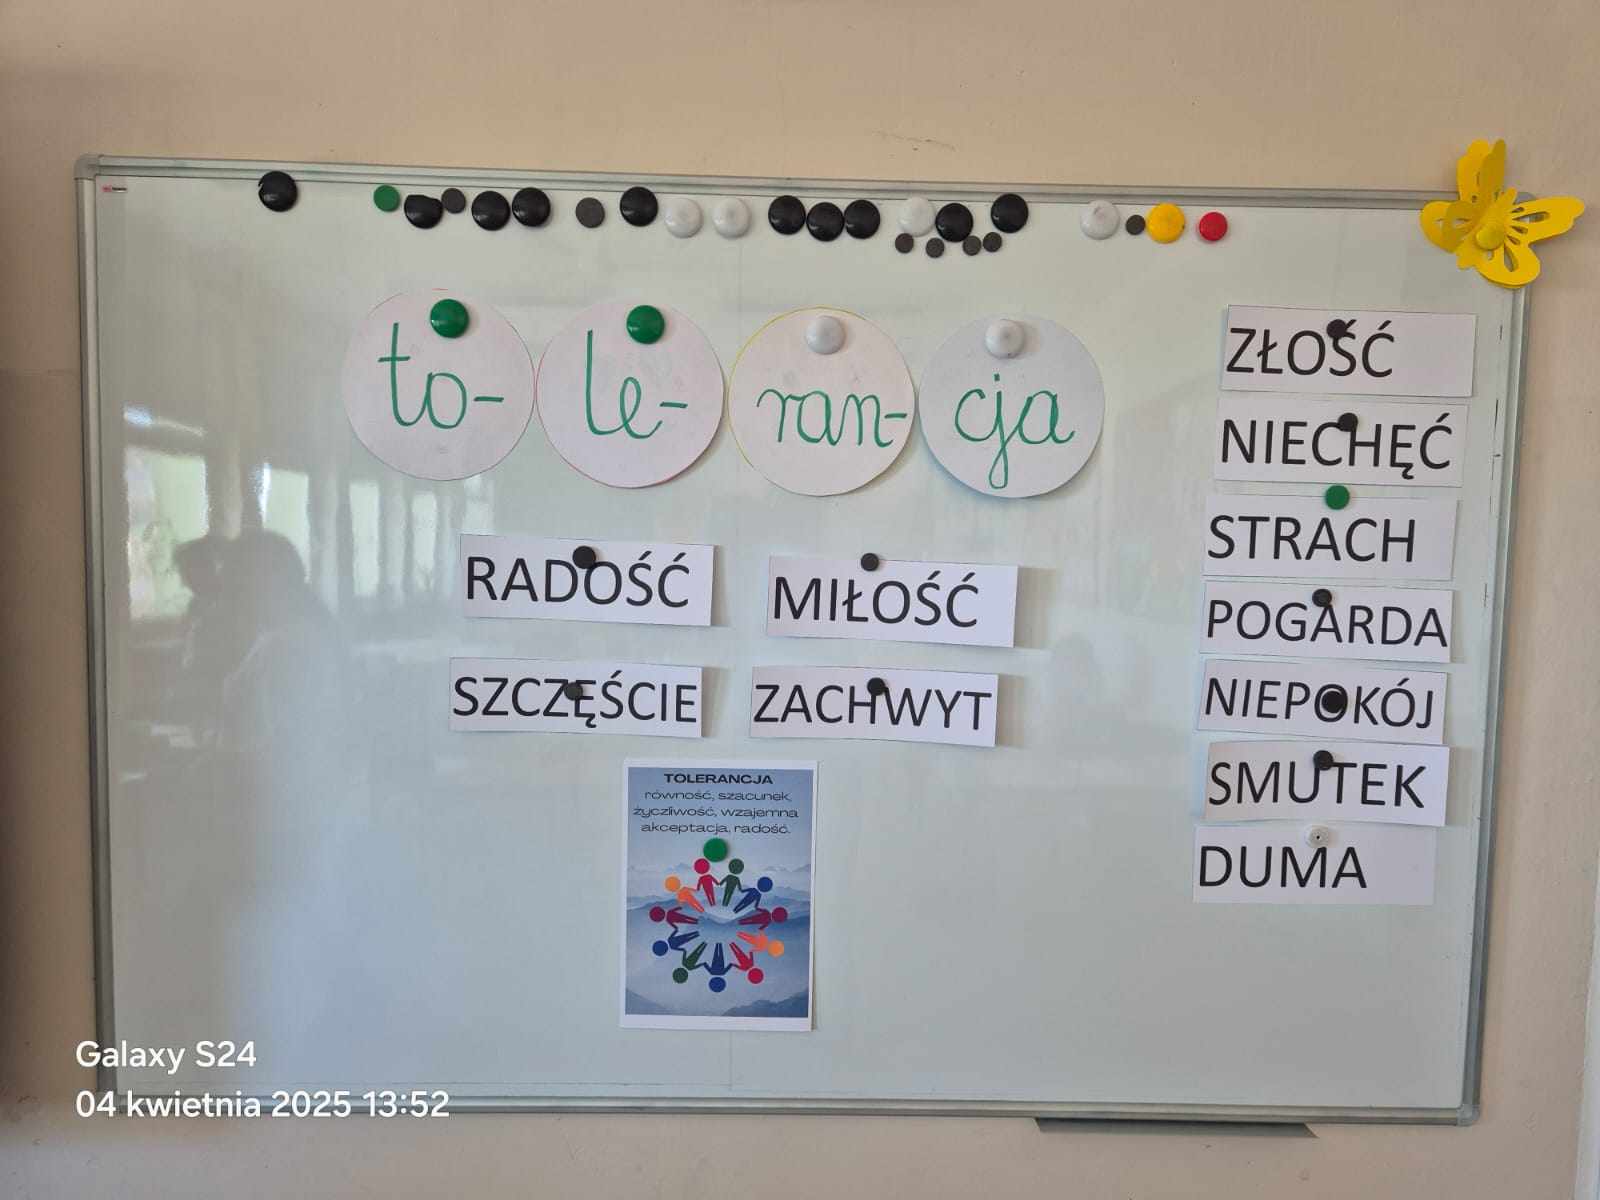 to- le- ran- cja
RADOŚĆ MIŁOŚĆ
SZCZĘŚCIE ZACHWYT
TOLERANCJA
równość, szacunek,
życzliwość, wzajemna
akceptacja, radość.
ZŁOŚĆ
NIECHĘĆ
STRACH
POGARDA
NIEPOKÓJ
SMUTEK
DUMA
Galaxy S24
04 kwietnia 2025 13:52